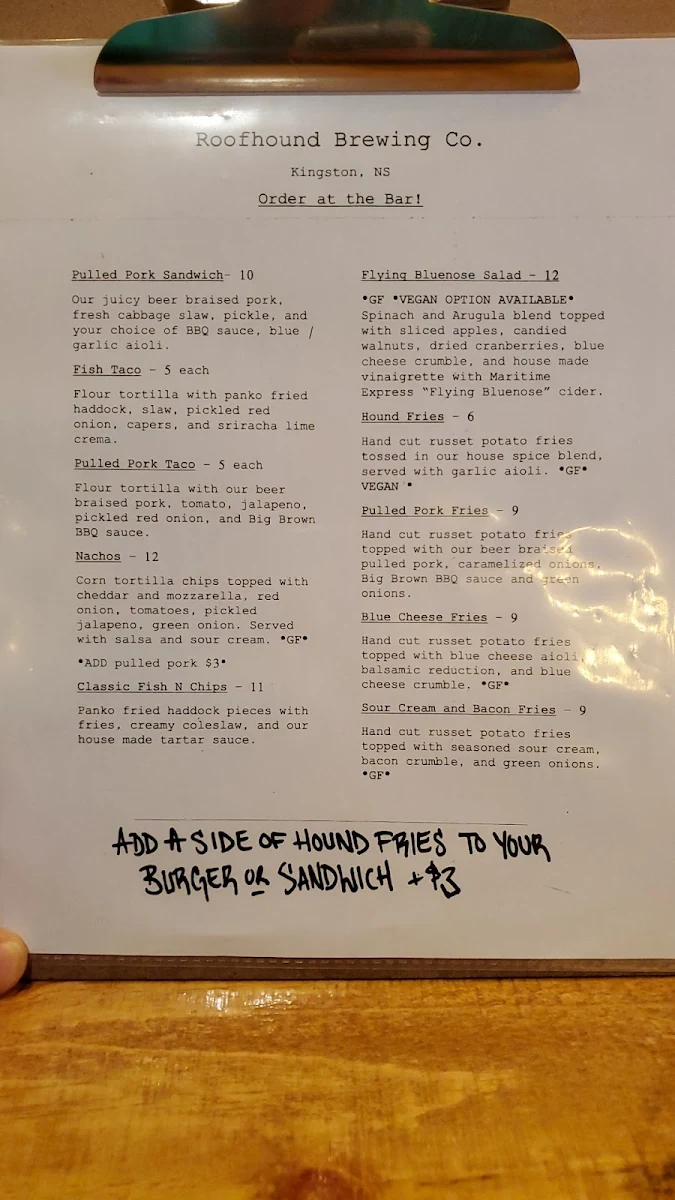 Roofhound Brewing Co.
Kingston, NS
Order at the Bar!
Pulled Pork Sandwich- 10
Our juicy beer braised pork,
fresh cabbage slaw, pickle, and
your choice of BBQ sauce, blue /
garlic aioli.
Fish Taco - 5 each
Flour tortilla with panko fried
haddock, slaw, pickled red
onion, capers, and sriracha lime
crema.
Pulled Pork Taco - 5 each
Flour tortilla with our beer
braised pork, tomato, jalapeno,
pickled red onion, and Big Brown
BBQ sauce.
Nachos - 12
Corn tortilla chips topped with
cheddar and mozzarella, red
onion, tomatoes, pickled
jalapeno, green onion. Served
with salsa and sour cream. *GF*
*ADD pulled pork $3*
Classic Fish N Chips - 11
Panko fried haddock pieces with
fries, creamy coleslaw, and our
house made tartar sauce.
Flying Bluenose Salad - 12
*GF *VEGAN OPTION AVAILABLE*
Spinach and Arugula blend topped
with sliced apples, candied
walnuts, dried cranberries, blue
cheese crumble, and house made
vinaigrette with Maritime
Express "Flying Bluenose" cider.
Hound Fries - 6
Hand cut russet potato fries
tossed in our house spice blend,
served with garlic aioli. *GF*
VEGAN *
Pulled Pork Fries - 9
Hand cut russet potato fries
topped with our beer braised
pulled pork, caramelized onions,
Big Brown BBQ sauce and green
onions.
Blue Cheese Fries - 9
Hand cut russet potato fries
topped with blue cheese aioli,
balsamic reduction, and blue
cheese crumble. *GF*
Sour Cream and Bacon Fries - 9
Hand cut russet potato fries
topped with seasoned sour cream,
bacon crumble, and green onions.
*GF*
ADD A SIDE OF HOUND FRIES TO YOUR
BURGER OR SANDWICH +$3